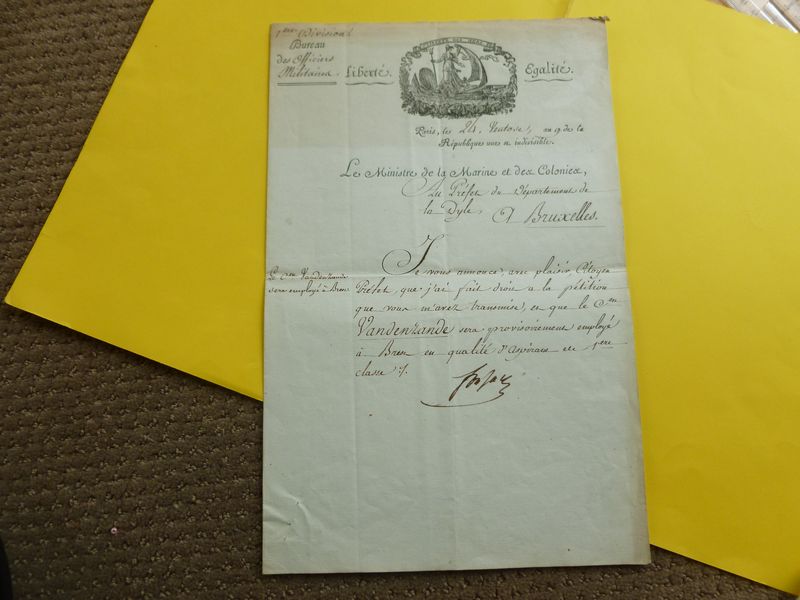 1ere Division
Bureau
des Officiers
Militaires
Liberté.
LIBERTÉ DES MERS
Egalité.
Paris, le 24 Ventose, an 9 de la
République une et indivisible.
Le Ministre de la Marine et des Colonies,
Au Préfet du Département de
la Dyle, A Bruxelles.
Le Cen Vandenzande
sera employé à Brest
Je vous annonce, avec plaisir, Citoyen
Préfet, que j'ai fait droit à la pétition
que vous m'avez transmise, et que le Cen
Vandenzande sera provisoirement employé
à Brest en qualité d'Aspirant de 1ere
classe ./.